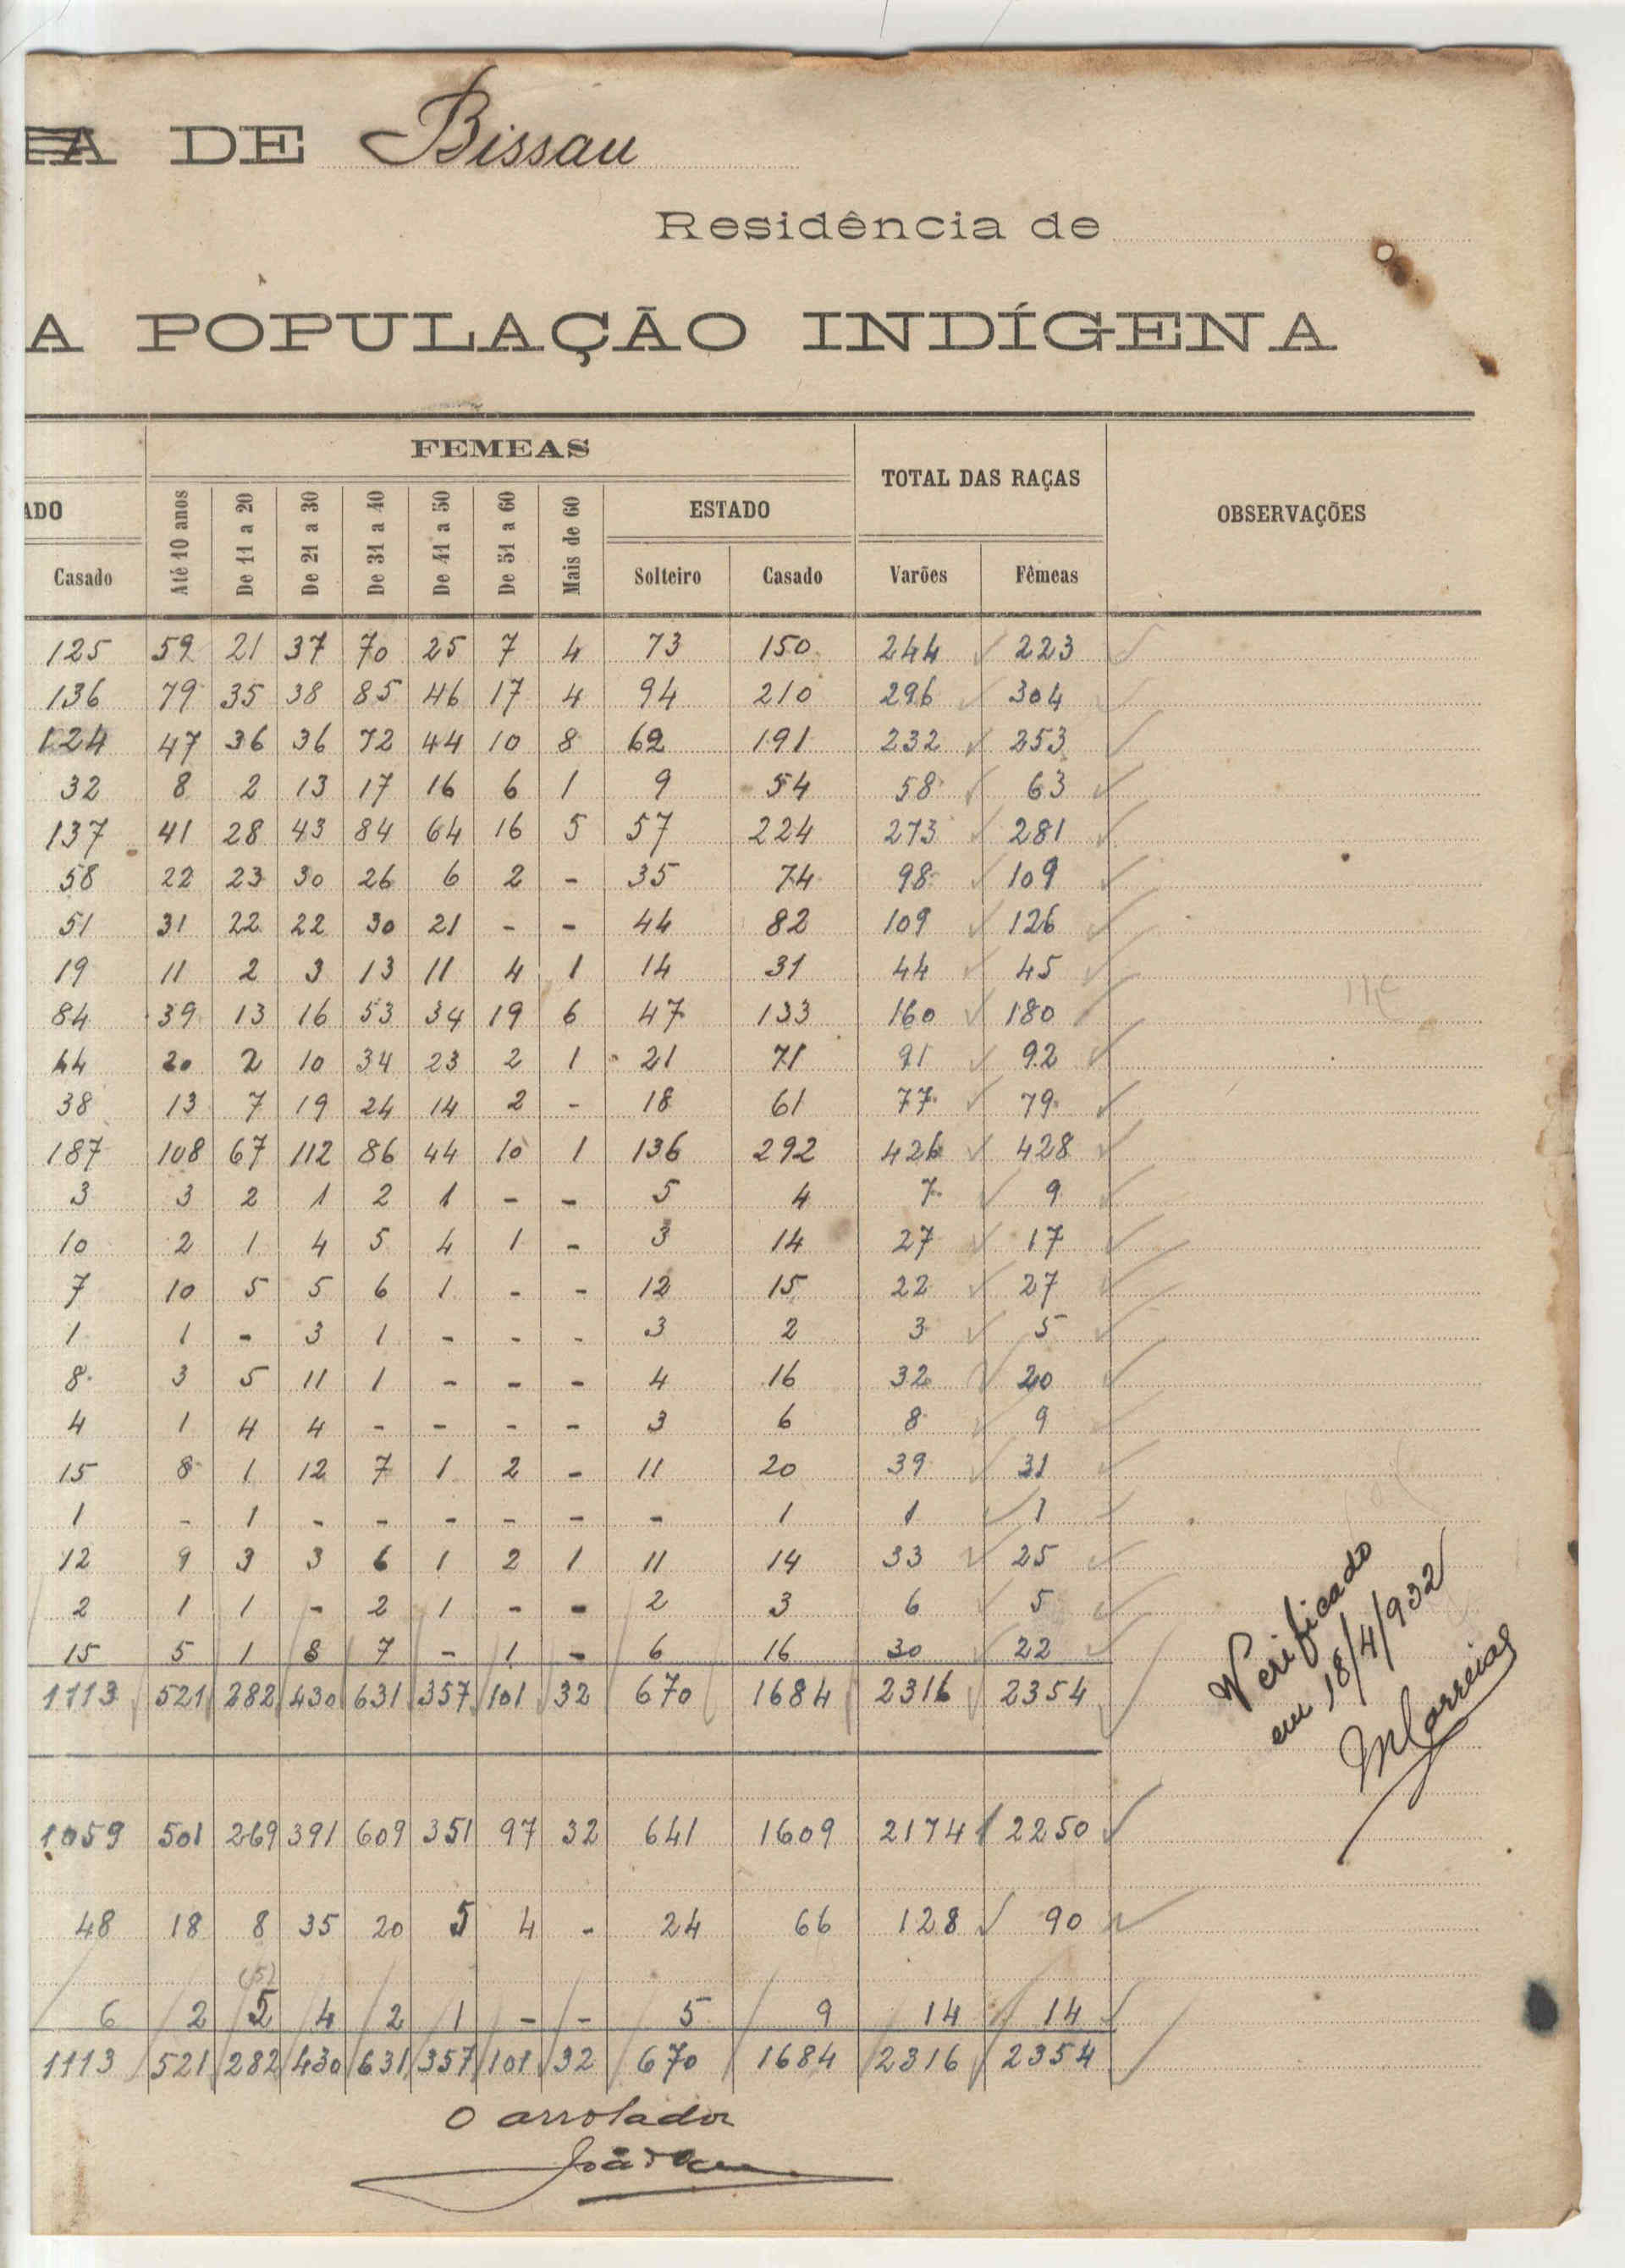 A DE Bissau
Residência de
A POPULAÇÃO INDÍGENA
FEMEAS
TOTAL DAS RAÇAS
OBSERVAÇÕES
ADO
ESTADO
Casado Até 10 anos De 11 a 20 De 21 a 30 De 31 a 40 De 41 a 50 De 51 a 60 Mais de 60 Solteiro Casado Varões Fêmeas
125 59 21 37 70 25 7 4 73 150 244 223
136 79 35 38 85 46 17 4 94 210 296 304
124 47 36 36 72 44 10 8 62 191 232 253
32 8 2 13 17 16 6 1 9 54 58 63
137 41 28 43 84 64 16 5 57 224 273 281
58 22 23 30 26 6 2 - 35 74 98 109
51 31 22 22 30 21 - - 44 82 109 126
19 11 2 3 13 11 4 1 14 31 44 45
84 39 13 16 53 34 19 6 47 133 160 180
44 20 2 10 34 23 2 1 21 71 91 92
38 13 7 19 24 14 2 - 18 61 77 79
187 108 67 112 86 44 10 1 136 292 426 428
3 3 2 1 2 1 - - 5 4 7 9
10 2 1 4 5 4 1 - 3 14 27 17
7 10 5 5 6 1 - - 12 15 22 27
1 1 - 3 1 - - - 3 2 3 5
8 3 5 11 1 - - - 4 16 32 20
4 1 4 4 - - - - 3 6 8 9
15 8 1 12 7 1 2 - 11 20 39 31
1 - 1 - - - - - - 1 1 1
12 9 3 3 6 1 2 1 11 14 33 25
2 1 1 - 2 1 - - 2 3 6 5
15 5 1 8 7 - 1 - 6 16 30 22
1113 521 282 430 631 357 101 32 670 1684 2316 2354
Verificado
em 18/4/932
MCorreias
1059 501 269 391 609 351 97 32 641 1609 2174 2250
48 18 8 35 20 5 4 - 24 66 128 90
(5)
6 2 5 4 2 1 - - 5 9 14 14
1113 521 282 430 631 357 101 32 670 1684 2316 2354
O arrolador